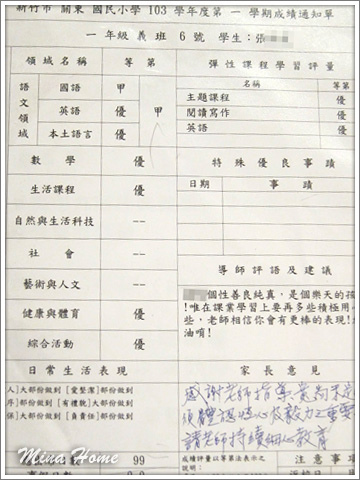 新竹市 關東 國民小學 103 學年度第 一 學期成績通知單
一 年級 義 班 6 號 學生：張
領域名稱 等第
語文領域
國語 甲 甲
英語 優
本土語言 優
數學 優
生活課程 優
自然與生活科技 --
社會 --
藝術與人文 --
健康與體育 優
綜合活動 優
日常生活表現
人】大部份做到【愛整潔】部份做到
序】部份做到【有禮貌】大部份做到
保】大部份做到【負責任】部份做到
99
彈性課程學習評量
名稱 等第
主題課程 優
閱讀寫作 優
英語 優
特殊優良事蹟
日期 事蹟
導師評語及建議
個性善良純真，是個樂天的孩
!唯在課業學習上要再多些積極用
些，老師相信你會有更棒的表現!
油唷!
家長意見
感謝老師指導，貴尚未定
須體認恆心及毅力之重要
請老師持續細心教育
成績評量以等第法表示之
說明：
注意事項
Mina Home